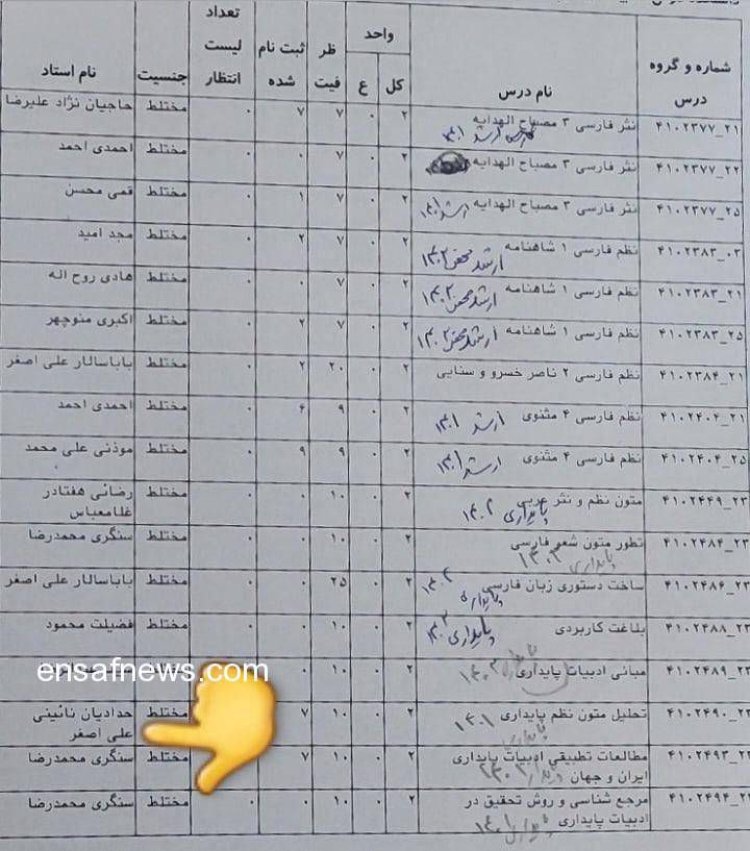 شماره و گروه درس نام درس واحد کل ع ظر فیت ثبت نام شده تعداد لیست انتظار جنسیت نام استاد
۴۱۰۲۳۷۷_۲۱ نثر فارسی ۳ مصباح الهدایه ۲ ۰ ۷ ۷ ۰ مختلط حاجیان نژاد علیرضا
ارشد ۱۴۰۱
۴۱۰۲۳۷۷_۲۲ نثر فارسی ۳ مصباح الهدایه ۲ ۰ ۷ ۰ ۰ مختلط احمدی احمد
۴۱۰۲۳۷۷_۲۵ نثر فارسی ۳ مصباح الهدایه ۲ ۰ ۷ ۱ ۰ مختلط قمی محسن
ارشد ۱۴۰۱
۴۱۰۲۳۸۳_۰۳ نظم فارسی ۱ شاهنامه ۲ ۰ ۷ ۲ ۰ مختلط مجد امید
ارشد محض ۱۴۰۲
۴۱۰۲۳۸۳_۲۱ نظم فارسی ۱ شاهنامه ۲ ۰ ۷ ۰ ۰ مختلط هادی روح اله
ارشد محض ۱۴۰۲
۴۱۰۲۳۸۳_۲۵ نظم فارسی ۱ شاهنامه ۲ ۰ ۷ ۲ ۰ مختلط اکبری منوچهر
ارشد محض ۱۴۰۲
۴۱۰۲۳۸۴_۲۱ نظم فارسی ۲ ناصر خسرو و سنایی ۲ ۰ ۲۰ ۲ ۰ مختلط باباسالار علی اصغر
۴۱۰۲۴۰۴_۲۱ نظم فارسی ۴ مثنوی ۲ ۰ ۹ ۶ ۰ مختلط احمدی احمد
ارشد ۱۴۰۱
۴۱۰۲۴۰۴_۲۵ نظم فارسی ۴ مثنوی ۲ ۰ ۹ ۹ ۰ مختلط موذنی علی محمد
ارشد ۱۴۰۱
۴۱۰۲۴۴۹_۲۳ متون نظم و نثر عربی ۲ ۰ ۱۰ ۰ ۰ مختلط رضائی هفتادر غلامعباس
پایداری ۱۴۰۲
۴۱۰۲۴۸۴_۲۳ تطور متون شعر فارسی ۲ ۰ ۱۰ ۰ ۰ مختلط سنگری محمدرضا
پایداری ۱۴۰۲
۴۱۰۲۴۸۶_۲۳ ساخت دستوری زبان فارسی ۲ ۰ ۲۵ ۰ ۰ مختلط باباسالار علی اصغر
پایداری ۱۴۰۲
۴۱۰۲۴۸۸_۲۳ بلاغت کاربردی ۲ ۰ ۱۰ ۰ ۰ مختلط فضیلت محمود
پایداری ۱۴۰۲
۴۱۰۲۴۸۹_۲۳ مبانی ادبیات پایداری ۲ ۰ ۱۰ ۰
ensafnews.com
۴۱۰۲۴۹۰_۲۳ تحلیل متون نظم پایداری ۲ ۰ ۱۰ ۷ مختلط حدادیان نائینی علی اصغر
۱۴۰۱ پایداری
۲۳_۴۱۰۲۴۹۳ مطالعات تطبیقی ادبیات پایداری ایران و جهان ۲ ۰ ۱۰ ۷ مختلط سنگری محمدرضا
۴۱۰۲۴۹۴ مرجع شناسی و روش تحقیق در ادبیات پایداری ۲ ۰ ۱۰ ۰ ۰ مختلط سنگری محمدرضا
پایداری ۱۴۰۱